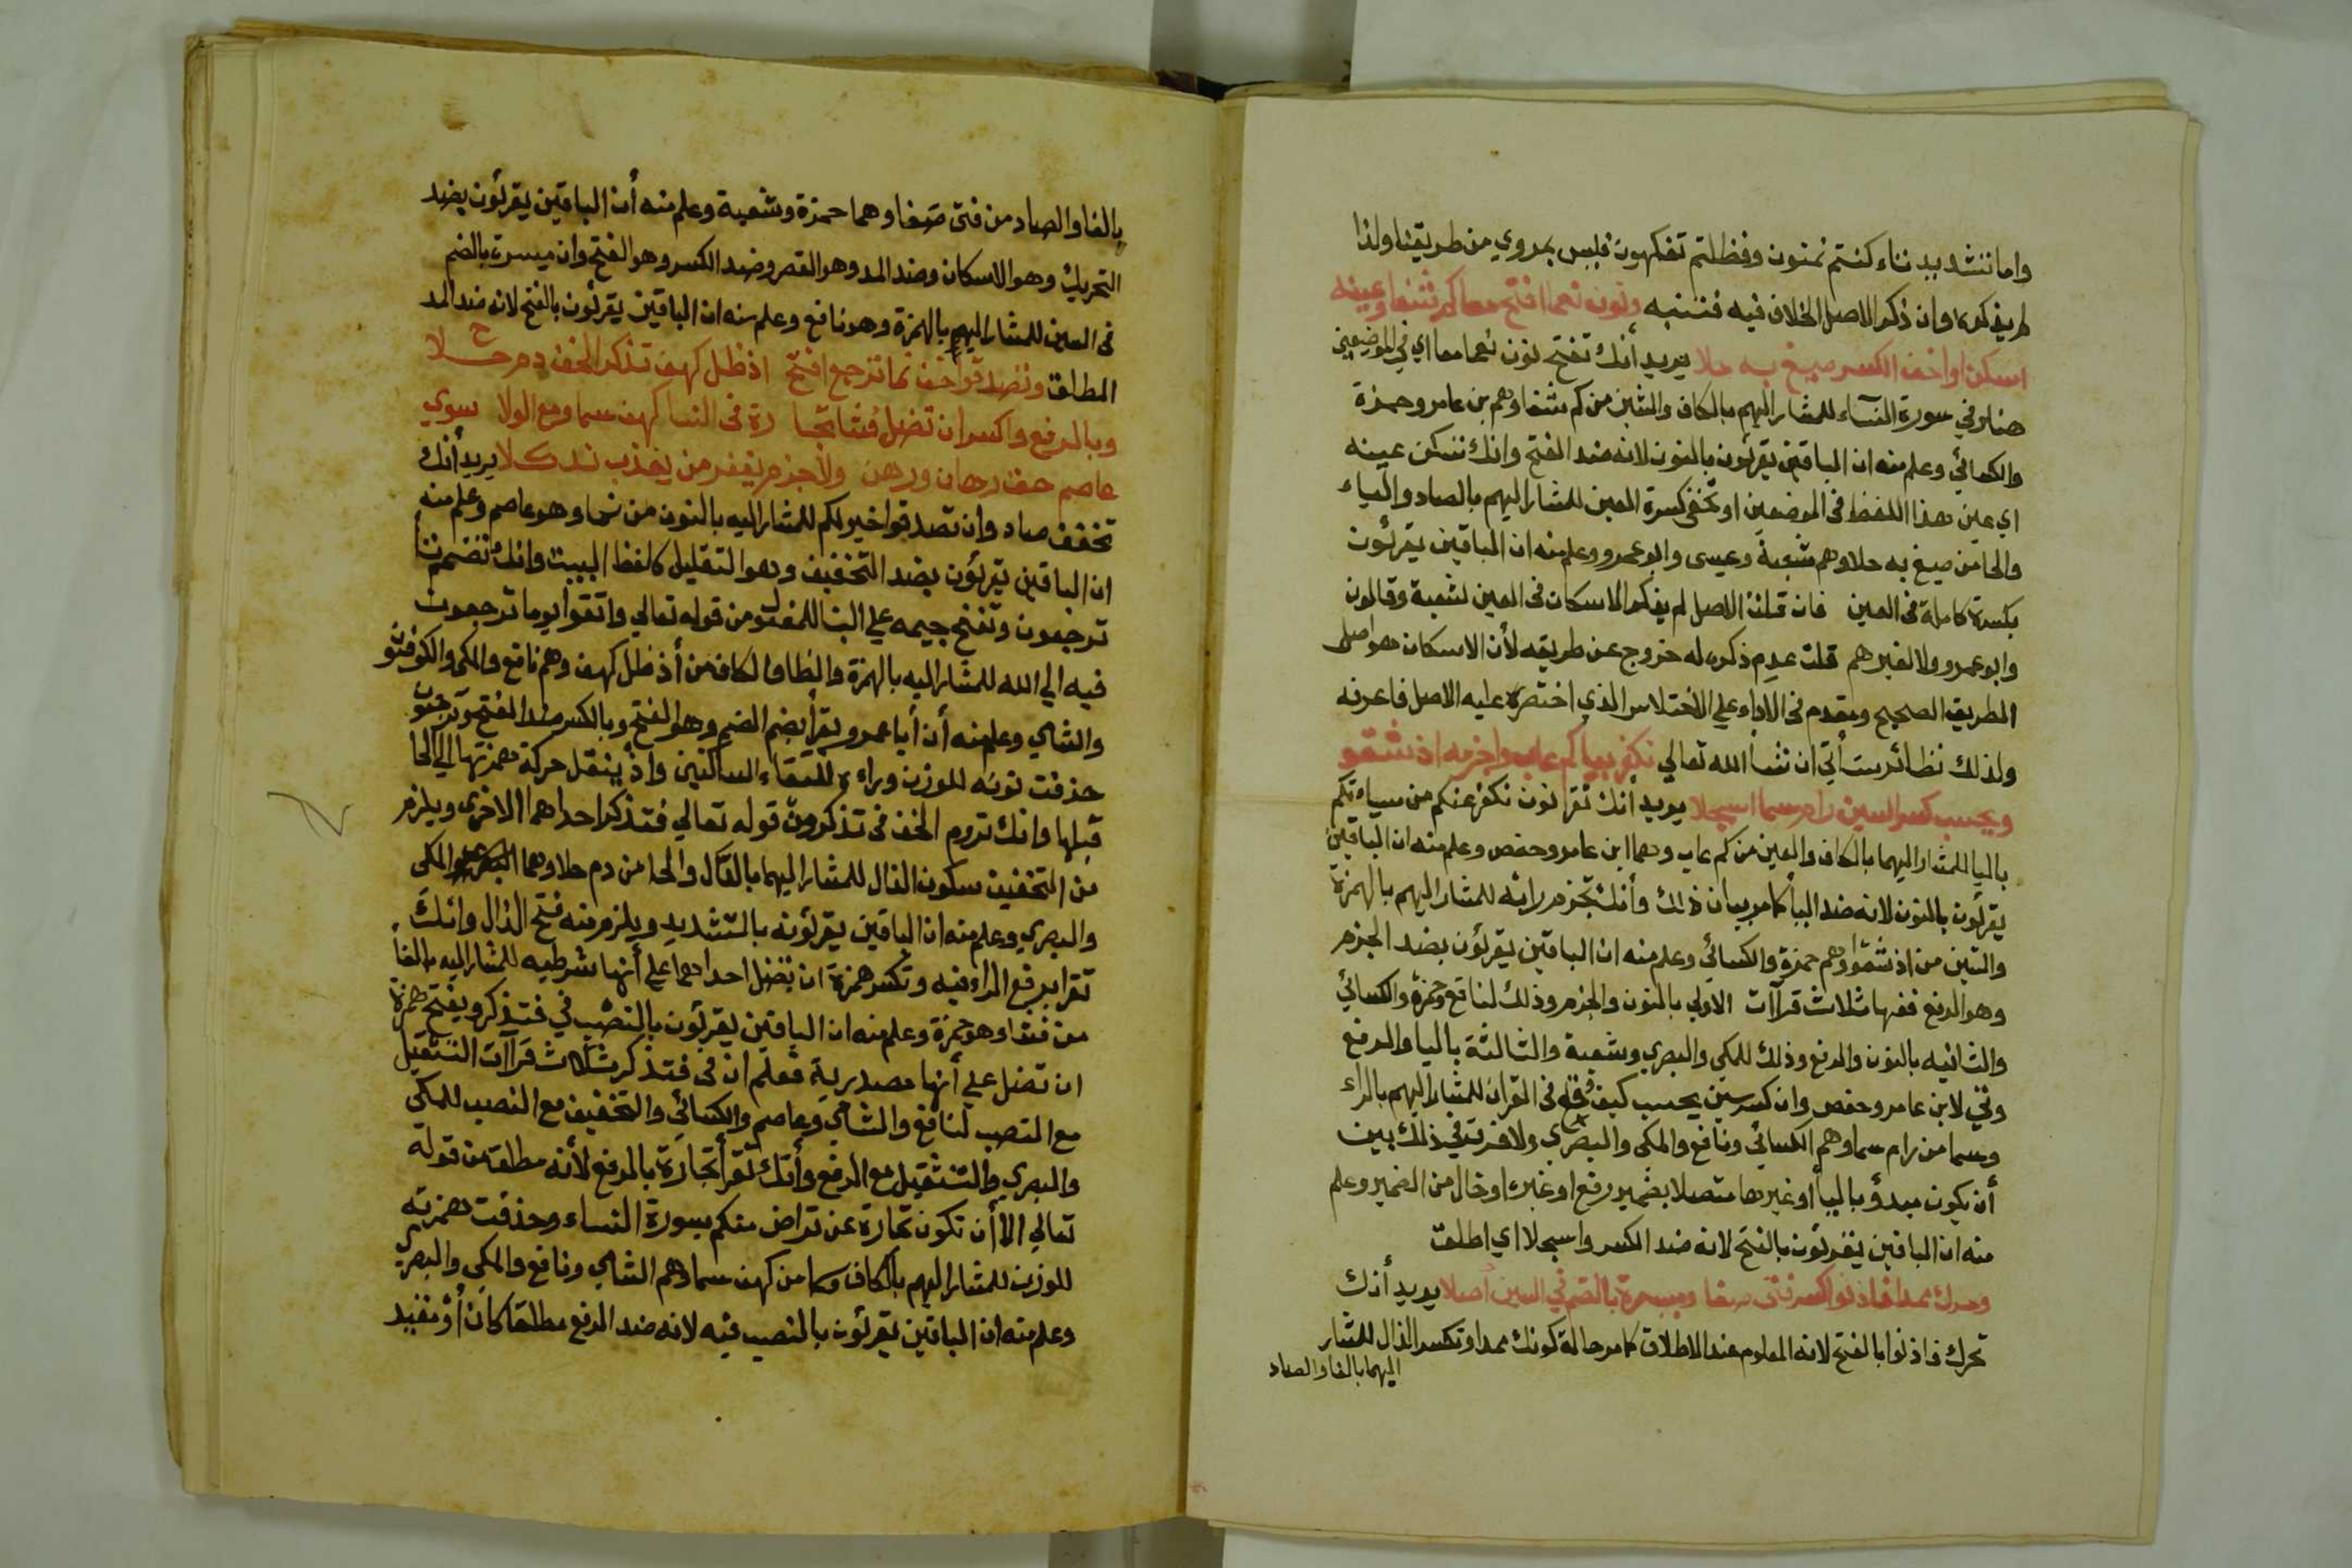 واما تشديد تاء كنتم تمنون وفظلتم تفكهون فليس بمروي من طريقنا ولذا
لم يذكره وان ذكر الاصل الخلاف فيه فتنبه ونون نعما افتح معا كم شفا وعينه
اسكن او اخف الكسر صيغ به حلا يريد أنك تفتح نون نعما معا اي في الموضعين
هنا وفي سورة النسآء للمشار اليهم بالكاف والشين من كم شفا وهم بن عامر وحمزة
والكسائي وعلم منه ان الباقين يقرئون بالنون لانه ضد الفتح وانك تسكن عينه
اي عين هذا اللفظ في الموضعين او تخفي كسرة العين للمشار اليهم بالصاد والباء
والحا من صيغ به حلا وهم شعبة وعيسى وابو عمرو وعلم منه ان الباقين يقرئون
بكسرة كاملة في العين فان قلت الاصل لم يذكر الاسكان في العين لشعبة وقالون
وابو عمرو ولا لغيرهم قلت عدم ذكره له خروج عن طريقه لأن الاسكان هو اصل
الطريق الصحيح ومقدم في الاداء علي الاختلاس الذي اختصره عليه الاصل فاعرفه
ولذلك نظائر ستأتي ان شا الله تعالي نكفر بيا كم عاب واجزمه اذ شفو
ويحسب كسر السين رام سما اسجلا يريد أنك تقرا نون نكفر عنكم من سيآتكم
باليا للمشار اليهما بالكاف والعين من كم عاب وهما ابن عامر وحفص وعلم منه ان الباقين
يقرئون بالنون لانه ضد اليا كما مر بيان ذلك وأنك تجزم رائه للمشار اليهم بالهمزة
والشين من اذ شفوا وهم حمزة والكسائي وعلم منه ان الباقين يقرئون بضد الجزم
وهو الرفع ففيها ثلاث قرآات الاولي بالنون والجزم وذلك لنافع وحمزة والكسائي
والثانيه بالنون والرفع وذلك للمكي والبصري وشعبة والثالثة باليا والرفع
وهي لابن عامر وحفص وان كسر سين يحسب كيف وقع في القران للمشار اليهم بالراء
وسما من رام سما وهم الكسائي ونافع والمكي والبصري ولا فرق في ذلك بين
أن يكون مبدؤ باليا أو غيرها متصلا بضمير رفع او غيره او خال من الضمير وعلم
منه ان الباقين يقرئون بالفتح لانه ضد الكسر واسجلا اي اطلق
وحرك بمد فاذنوا اكسر فتى صفا وميسرة بالضم في السين اصلا يريد أنك
تحرك فاذنوا بالفتح لانه المعلوم عند الاطلاق كما مر حالة كونك بمدا وتكسر الذال للمشار
اليهما بالفا والصاد
بالفا والصاد من فتى صفا وهما حمزة وشعبة وعلم منه أن الباقين يقرئون بضد
التحريك وهو الاسكان وضد المد وهو القصر وضد الكسر وهو الفتح وان ميسرة بالضم
في السين للمشار اليهم بالهمزة وهو نافع وعلم منه ان الباقين يقرئون بالفتح لانه ضد الضم
المطلق وتصدقوا خف نما ترجع افتح اذ ظل كهف تذكر الخف دم حلا
وبالرفع واكسر ان تضل فشا تجا رة في النسا كهف سما ومع الولا سوي
عاصم حق رهان ورهن ولاجزم يغفر من يعذب ند كلا يريد أنك
تخفف صاد وان تصدقوا خير لكم للمشار اليه بالنون من نما وهو عاصم وعلم منه
ان الباقين يقرئون بضد التخفيف وهو التقليل كالفظ البيت وانك تفتح تا
ترجعون وتفتح جيمه علي البنا للمفعول من قوله تعالي واتقوا يوما ترجعون
فيه الي الله للمشار اليه بالهمزة والظا والكاف من أذ ظل كهف وهم نافع والمكي والكوفيون
والشامي وعلم منه أن أبا عمرو يقرأ بضم الضم وهو الفتح وبالكسر ضد الفتح وترجعون
حذفت نونه للوزن وراءه للتقاء الساكنين واذ ينقل حركة همزتها الي الحا
قبلها وانك تروم الخف في تذكرون قوله تعالي فتذكر احداهما الاخري ويلزم
من التخفيف سكون الذال للمشار اليهما بالدال والحا من دم حلا وهما المكي
والبصري وعلم منه ان الباقين يقرئونه بالتشديد ويلزم منه فتح الذال وانك
تقرا برفع الراء فيه وتكسر همزة ان تضل احداهما علي أنها شرطيه للمشار اليه بالفا
من فشا وهو حمزة وعلم منه ان الباقين يقرئون بالنصب في فتذكر وبفتح همزة
ان تضل علي أنها مصدرية فعلم ان في فتذكر ثلاث قرآات التثقيل
مع النصب لنافع والشامي وعاصم والكسائي والتخفيف مع النصب للمكي
والبصري والتثقيل مع الرفع وأنك تقرأ تجارة بالرفع لأنه مطلق من قوله
تعالي الا أن تكون تجارة عن تراض منكم بسورة النساء وحذفت همزته
للوزن للمشار اليهم بالكاف وسما من كهف سما وهم الشامي ونافع والمكي والبصري
وعلم منه ان الباقين يقرئون بالنصب فيه لانه ضد الرفع مطلقا كان أو مقيد